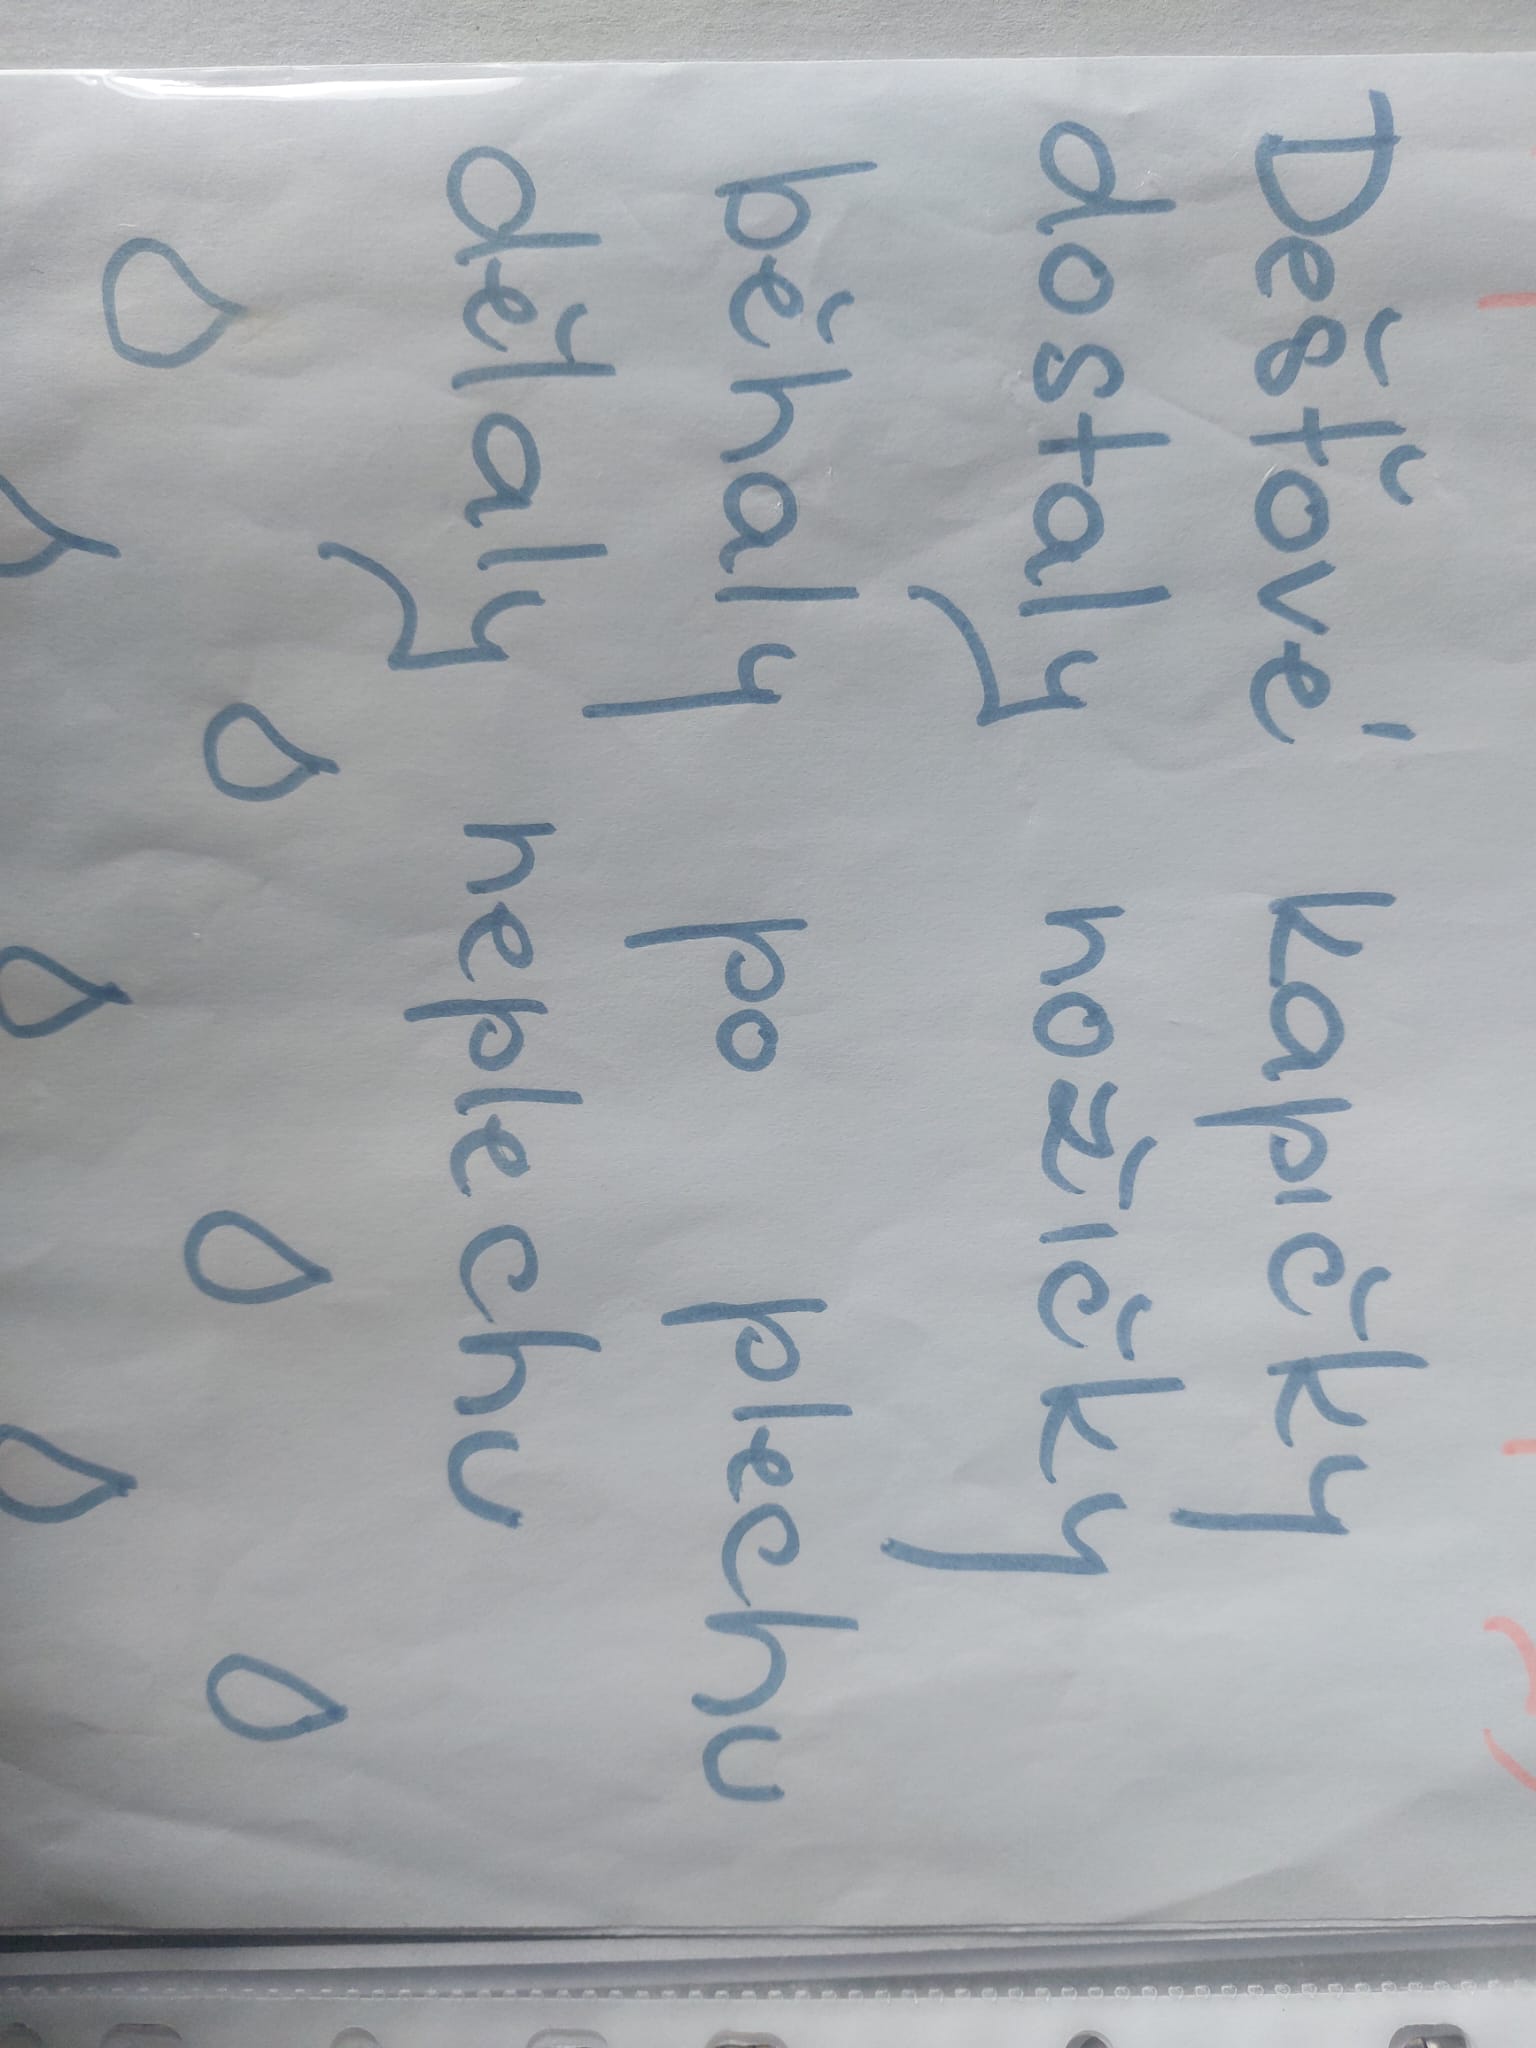 Dešťové kapičky
dostaly nožičky
běhaly po plechu
dělaly neplechu